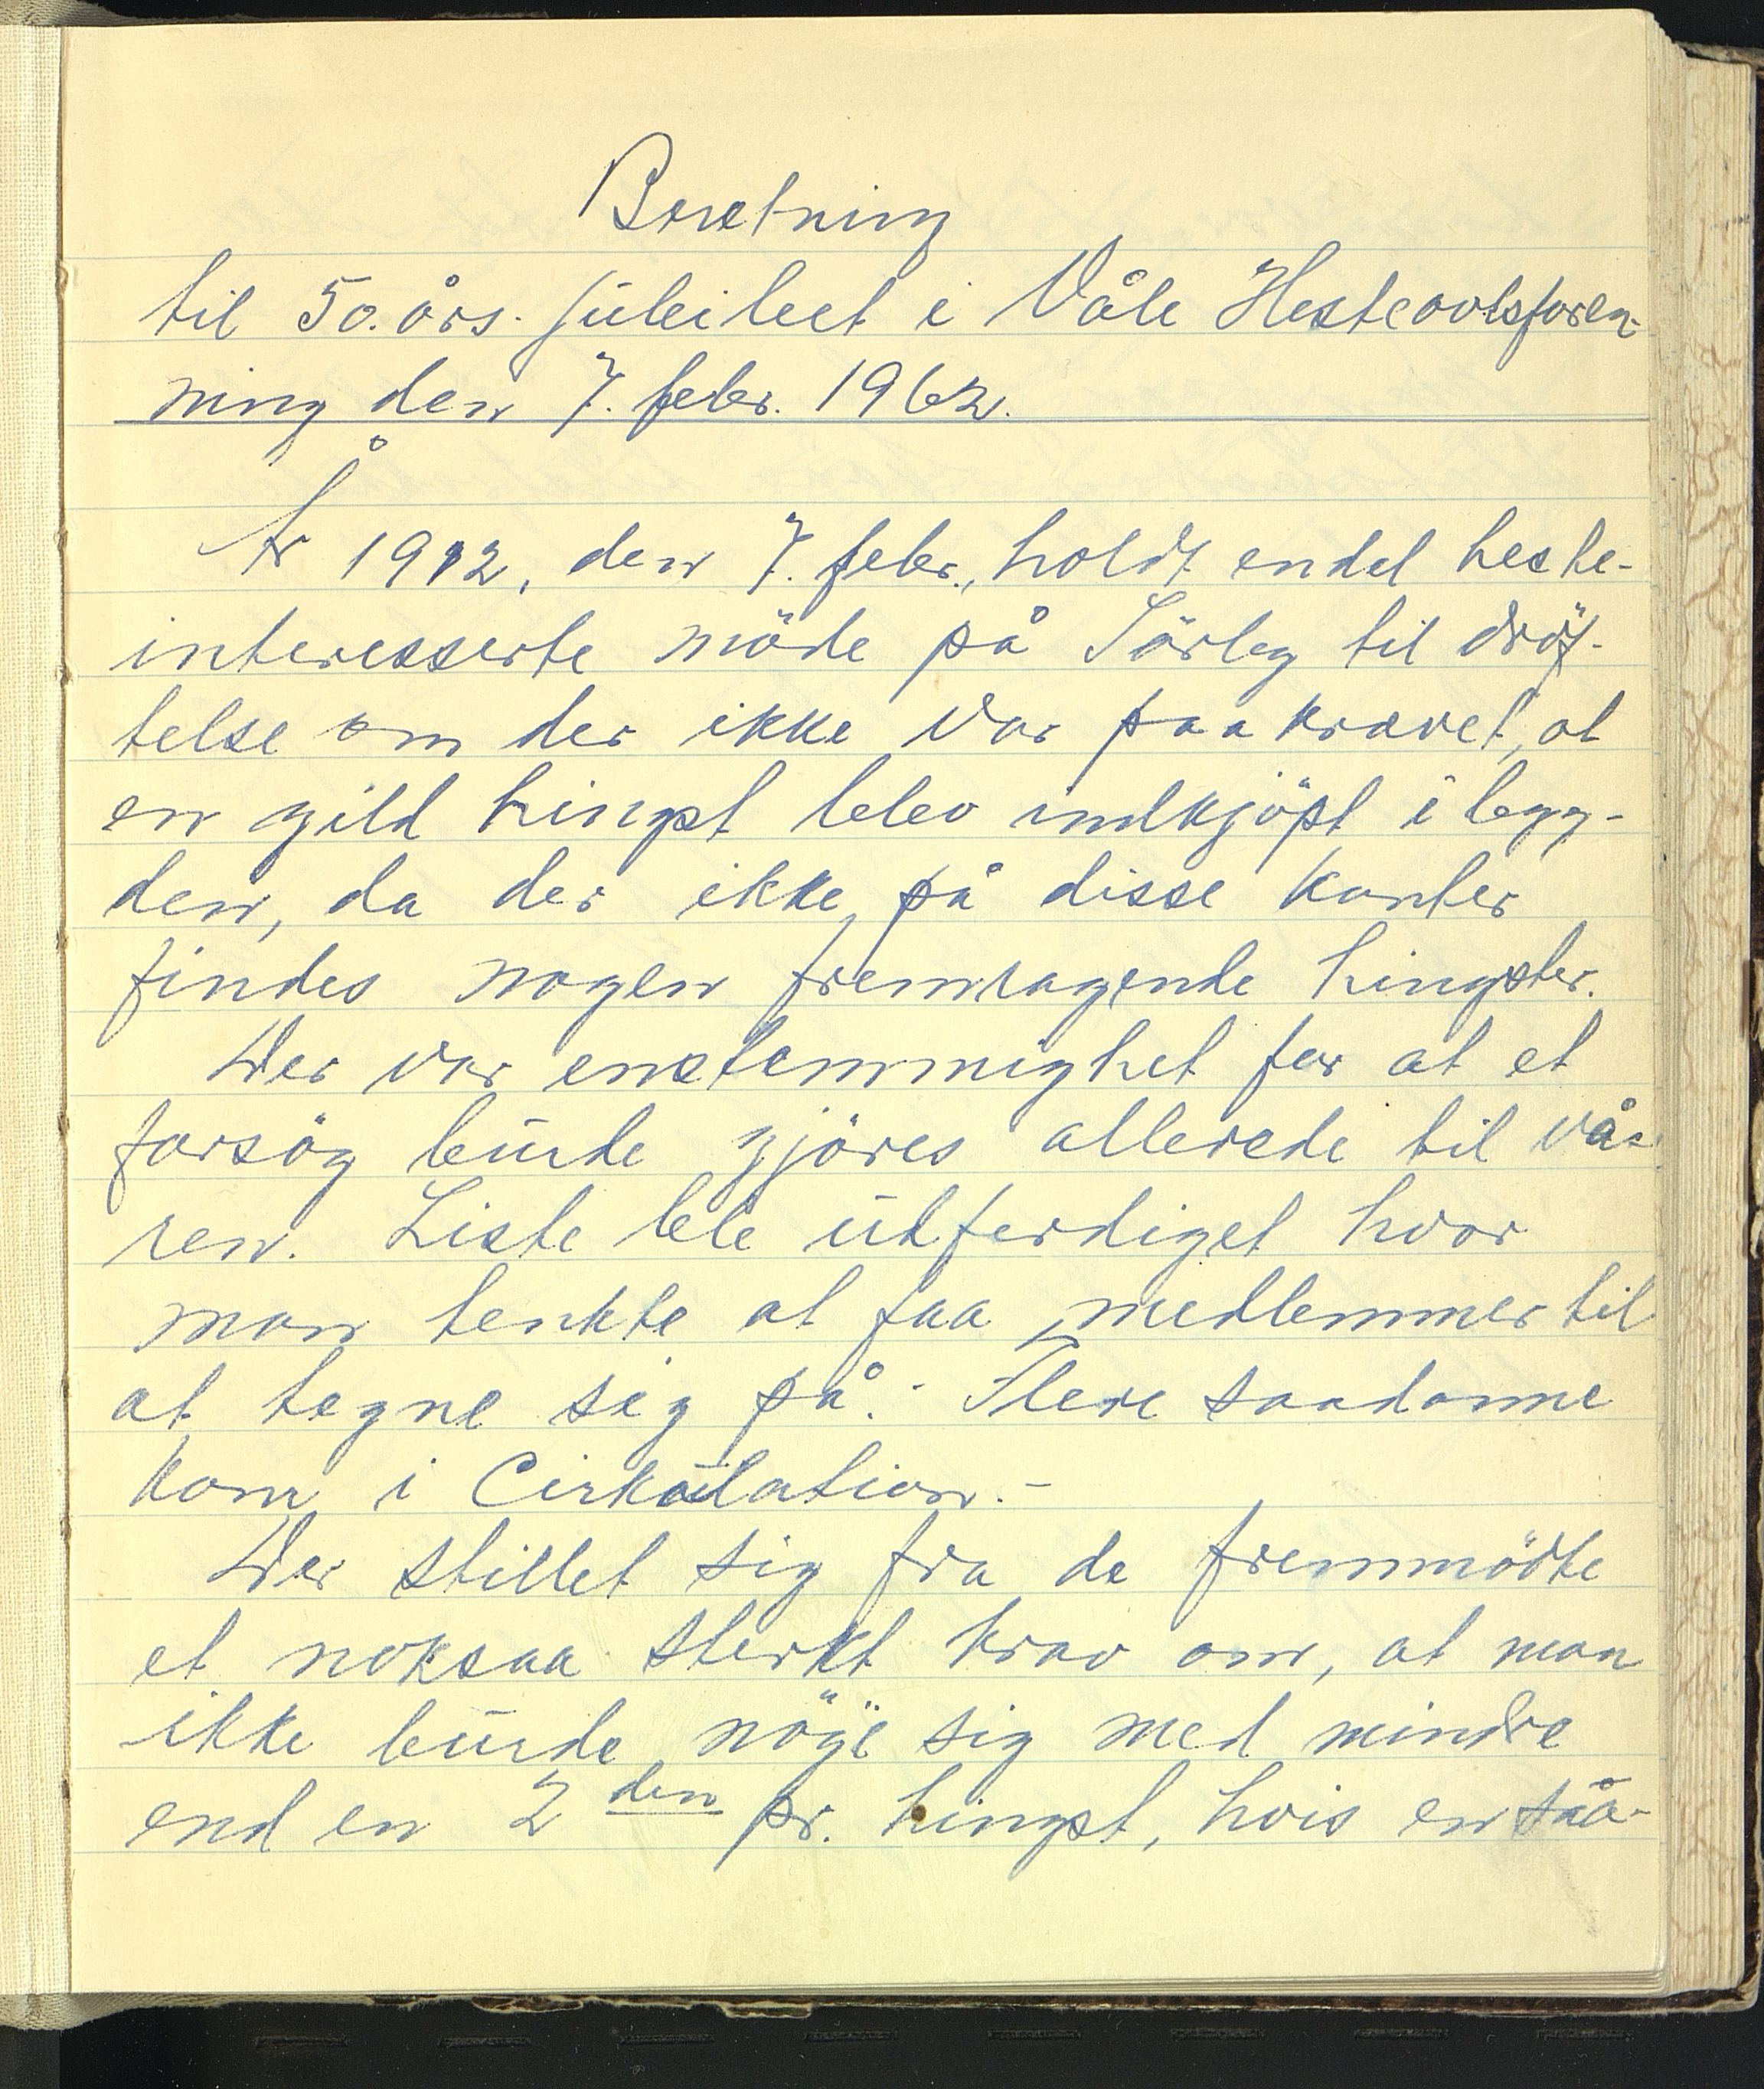 Beretning
til 50. års. jubileet i Våle Hesteavlsforen-
ning den 7. febr. 1962.
År 1912, den 7. febr., holdt endel heste-
interesserte möde på Sörby til dröf-
telse om der ikke var paakrævet, at
en gild hingst blev indkjöpt i byg-
den, da der ikke på disse kanter
findes nogen fremragende hingster.
Der var enstemmighet for at et
forsög burde gjöres allerede til vå-
ren. Liste ble utferdiget hvor
man tenkte at faa medlemmer til
at tegne sig på. - Flere saadanne
kom i Cirkulation. -
Der stillet sig fra de fremmödte
et noksaa sterkt krav om, at man
ikke burde nöye sig med mindre
end en 2 den pr. hingst, hvis en såa-